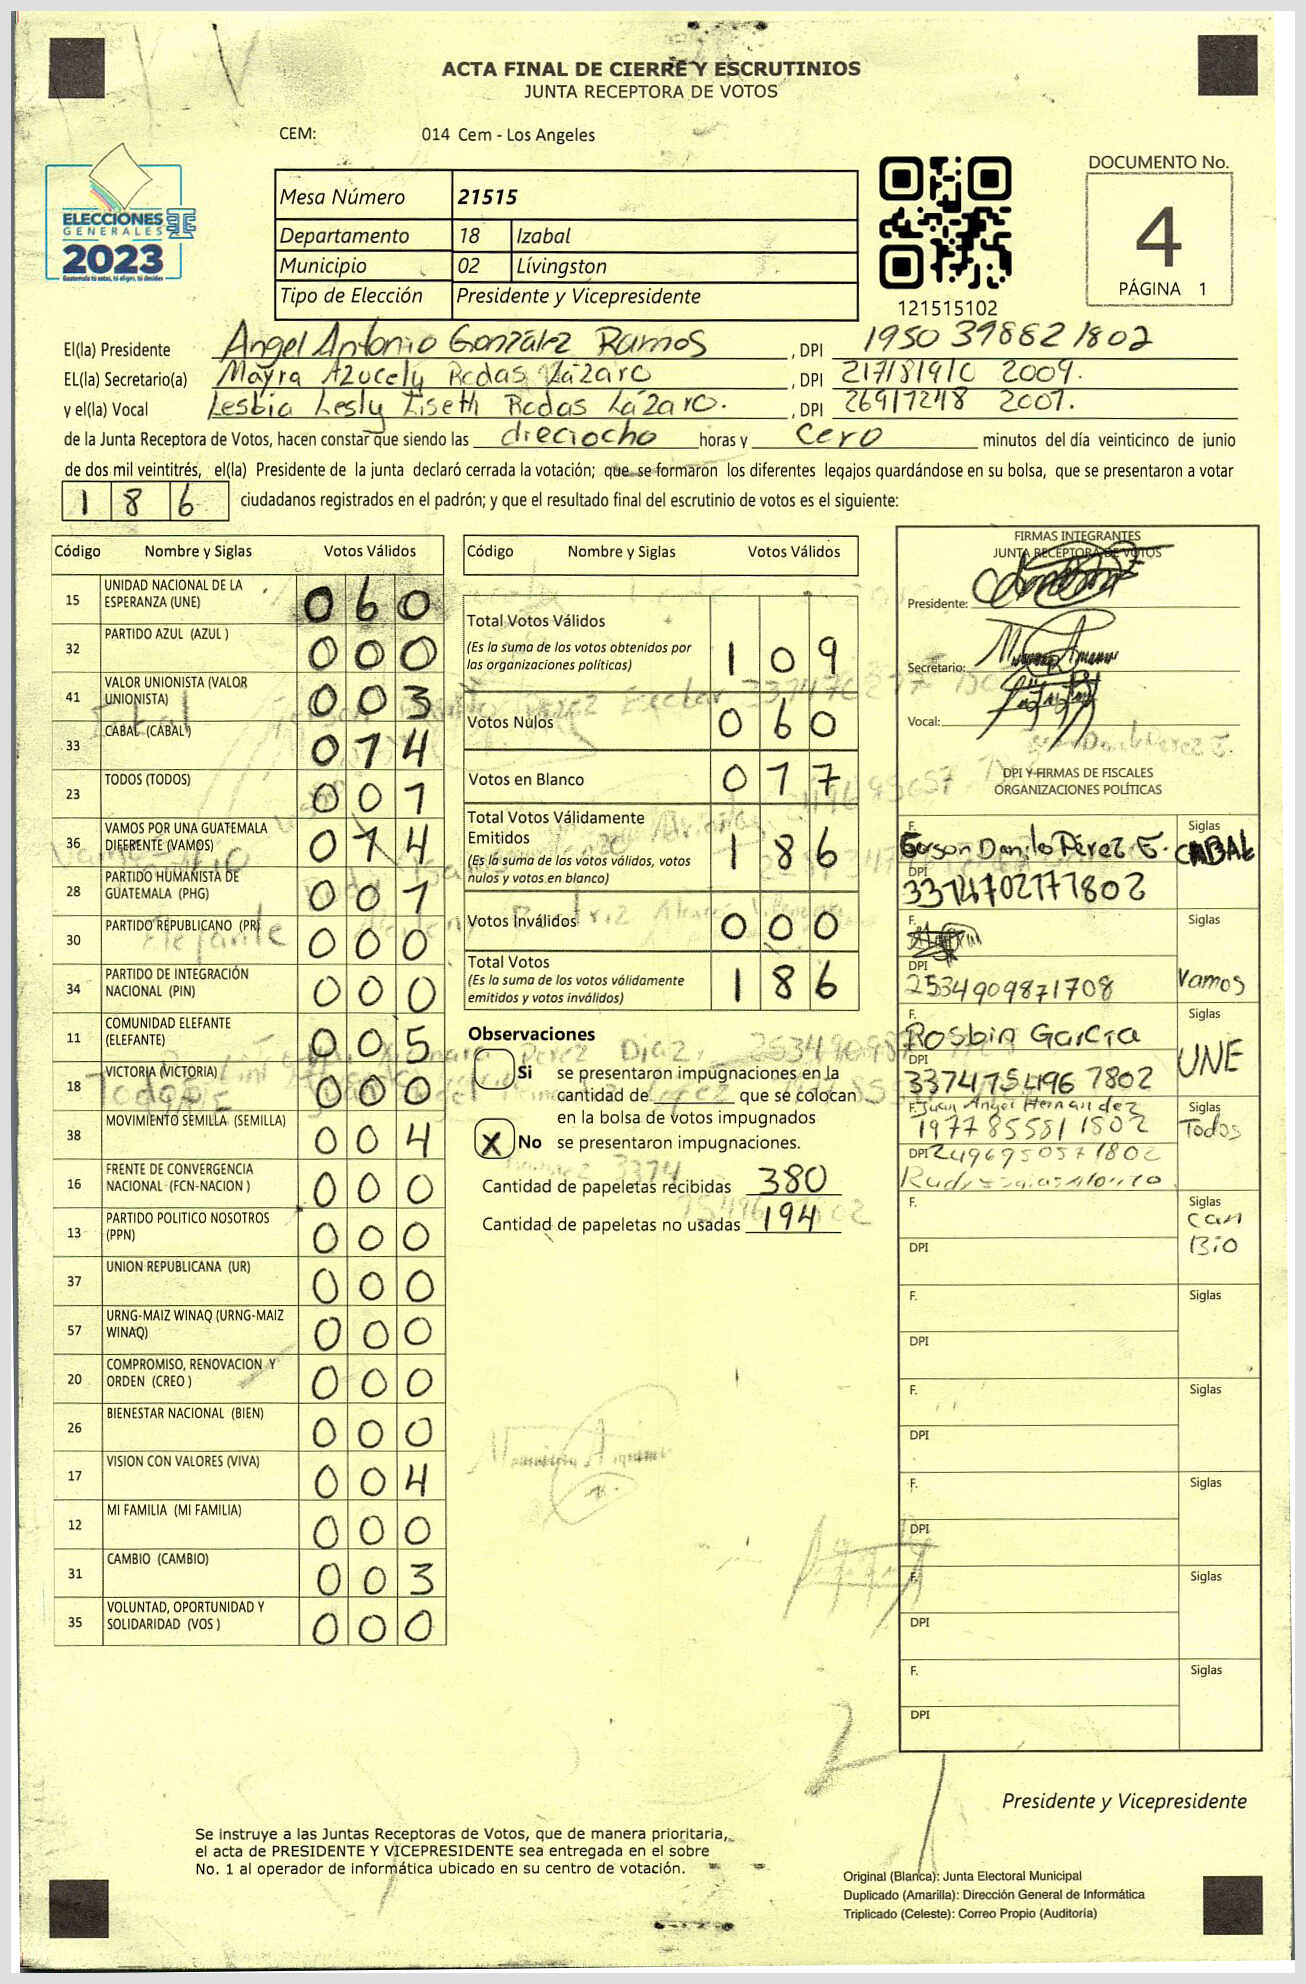 ACTA FINAL DE CIERRE Y ESCRUTINIOS
JUNTA RECEPTORA DE VOTOS
CEM: 014 Cem - Los Angeles
ELECCIONES
GENERALES
2023
Guatemala tú votas, tú eliges, tú decides
Mesa Número 21515
Departamento 18 Izabal
Municipio 02 Lívingston
Tipo de Elección Presidente y Vicepresidente
121515102
DOCUMENTO No.
4
PÁGINA 1
El(la) Presidente Angel Antonio González Ramos , DPI 1950 39882 1802
EL(la) Secretario(a) Mayra Azucely Rodas Lázaro , DPI 217181910 2009.
y el(la) Vocal Lesbia Lesly Liseth Rodas Lázaro. , DPI 26917248 2007.
de la Junta Receptora de Votos, hacen constar que siendo las dieciocho horas y cero minutos del día veinticinco de junio
de dos mil veintitrés, el(la) Presidente de la junta declaró cerrada la votación; que se formaron los diferentes legajos quardándose en su bolsa, que se presentaron a votar
186 ciudadanos registrados en el padrón; y que el resultado final del escrutinio de votos es el siguiente:
Código Nombre y Siglas Votos Válidos
15 UNIDAD NACIONAL DE LA ESPERANZA (UNE) 060
32 PARTIDO AZUL (AZUL ) 000
41 VALOR UNIONISTA (VALOR UNIONISTA) 003
33 CABAL (CABAL ) 014
23 TODOS (TODOS) 001
36 VAMOS POR UNA GUATEMALA DIFERENTE (VAMOS) 014
28 PARTIDO HUMANISTA DE GUATEMALA (PHG) 001
30 PARTIDO REPUBLICANO (PR) 000
34 PARTIDO DE INTEGRACIÓN NACIONAL (PIN) 000
11 COMUNIDAD ELEFANTE (ELEFANTE) 005
18 VICTORIA (VICTORIA) 000
38 MOVIMIENTO SEMILLA (SEMILLA) 004
16 FRENTE DE CONVERGENCIA NACIONAL (FCN-NACION ) 000
13 PARTIDO POLITICO NOSOTROS (PPN) 000
37 UNION REPUBLICANA (UR) 000
57 URNG-MAIZ WINAQ (URNG-MAIZ WINAQ) 000
20 COMPROMISO, RENOVACION Y ORDEN (CREO ) 000
26 BIENESTAR NACIONAL (BIEN) 000
17 VISION CON VALORES (VIVA) 004
12 MI FAMILIA (MI FAMILIA) 000
31 CAMBIO (CAMBIO) 003
35 VOLUNTAD, OPORTUNIDAD Y SOLIDARIDAD (VOS ) 000
Código Nombre y Siglas Votos Válidos
Total Votos Válidos 109
(Es la suma de los votos obtenidos por
las organizaciones políticas)
Votos Nulos 060
Votos en Blanco 017
Total Votos Válidamente
Emitidos 186
(Es la suma de los votos válidos, votos
nulos y votos en blanco)
Votos Inválidos 000
Total Votos 186
(Es la suma de los votos válidamente
emitidos y votos inválidos)
Observaciones
Si se presentaron impugnaciones en la
cantidad de ________ que se colocan
en la bolsa de votos impugnados
X No se presentaron impugnaciones.
Cantidad de papeletas recibidas 380
Cantidad de papeletas no usadas 194
FIRMAS INTEGRANTES
JUNTA RECEPTORA DE VOTOS
Presidente:
Secretario:
Vocal:
DPI Y FIRMAS DE FISCALES
ORGANIZACIONES POLÍTICAS
F. Gerson Danilo Pérez E. Siglas CABAL
DPI 3374702771802
F. Siglas Vamos
DPI 2534909871708
F. Rosbin García Siglas UNE
DPI 3374754967802
F. Juan Angel Hernandez Siglas Todos
1977 85581 1802
DPI 2496950571802
F. Siglas Can
DPI Bio
F. Siglas
DPI
F. Siglas
DPI
F. Siglas
DPI
F. Siglas
DPI
F. Siglas
DPI
Presidente y Vicepresidente
Se instruye a las Juntas Receptoras de Votos, que de manera prioritaria,
el acta de PRESIDENTE Y VICEPRESIDENTE sea entregada en el sobre
No. 1 al operador de informática ubicado en su centro de votación.
Original (Blanca): Junta Electoral Municipal
Duplicado (Amarilla): Dirección General de Informática
Triplicado (Celeste): Correo Propio (Auditoría)